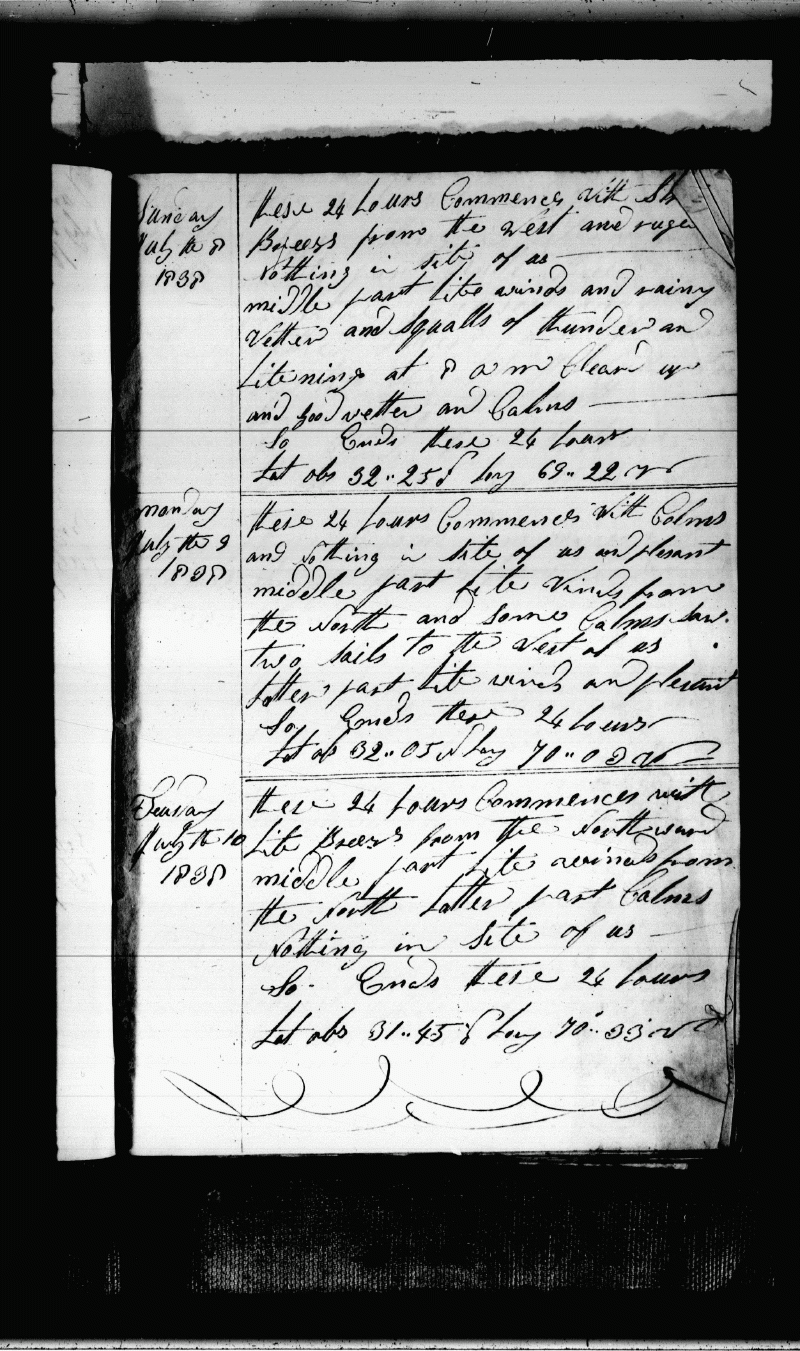 Sunday
July the 8
1838
these 24 hours Commences with
Breezs from the west and ruged
Nothing in site of us
middle part lite winds and rainy
Vetter and Squalls of thunder an
litening at 8 a m Clear up
and good vetter and Calms
So Ends these 24 hours
Lat obs 32..25 Long 69..22 W
monday
July the 9
1838
these 24 hours Commences With Calms
and Nothing in site of us and plesant
middle part lite Vinds from
the North and Some Calms Saw
two Sails to the Vest of us
latter part lite winds an plesant
So Ends these 24 hours
Lat ob 32..05 N Long 70..03 W
Tuesday
July the 10
1838
these 24 hours Commences with
lite Breezs from the Northward
middle part lite winds from
the North latter part Calms
Nothing in Site of us
So Ends these 24 hours
Lat obs 31..45 Long 70..33 W